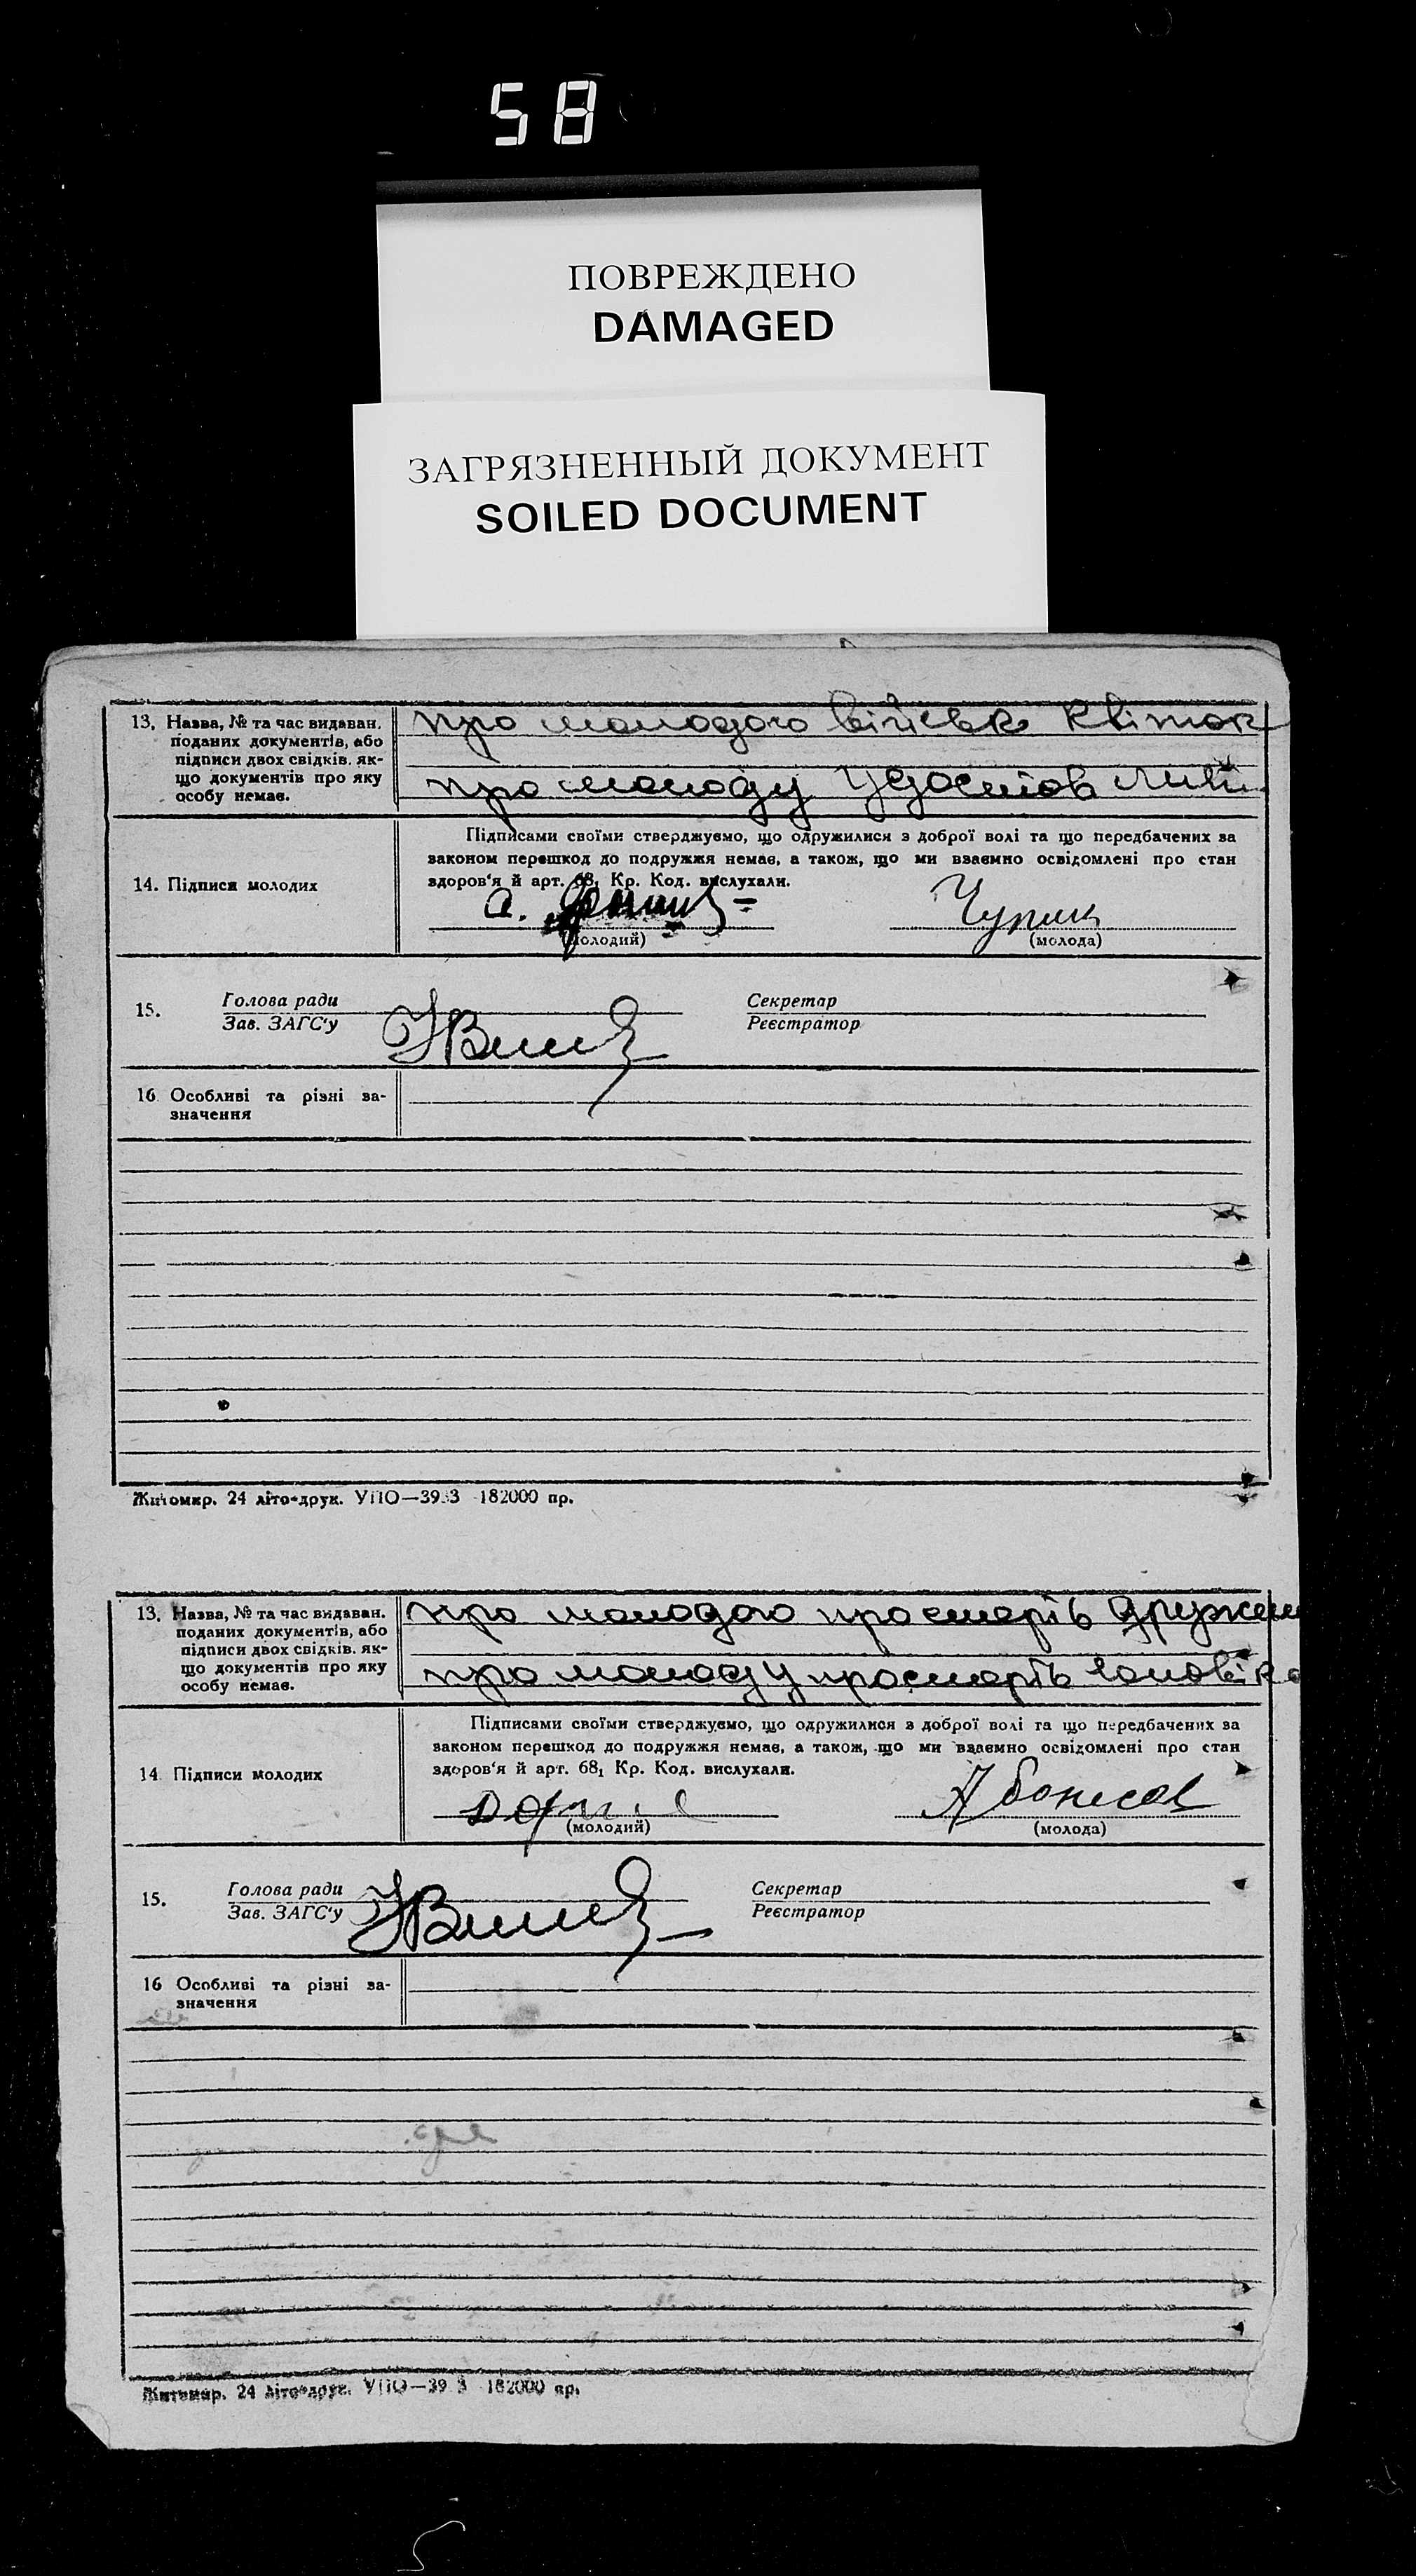 58
ПОВРЕЖДЕНО
DAMAGED
ЗАГРЯЗНЕННЫЙ ДОКУМЕНТ
SOILED DOCUMENT
13. Назва, № та час видаван.
поданих документів, або
підписи двох свідків, як-
що документів про яку
особу немає.
про молодого військ квиток
про молоду
14. Підписи молодих
Підписами своїми стверджуємо, що одружилися з доброї волі та що передбачених за
законом перешкод до подружжя немає, а також, що ми взаємно освідомлені про стан
здоров'я й арт. 68₁ Кр. Код. вислухали.
(молодий)
(молода)
15.
Голова ради
Зав. ЗАГС'у
Секретар
Реєстратор
16 Особливі та різні за-
значення
Житомир. 24 літо-друк. УПО—3933 182000 пр.
13. Назва, № та час видаван.
поданих документів, або
підписи двох свідків, як-
що документів про яку
особу немає.
про молодого
про молоду
14 Підписи молодих
Підписами своїми стверджуємо, що одружилися з доброї волі та що передбачених за
законом перешкод до подружжя немає, а також, що ми взаємно освідомлені про стан
здоров'я й арт. 68₁ Кр. Код. вислухали.
(молодий)
(молода)
15.
Голова ради
Зав. ЗАГС'у
Секретар
Реєстратор
16 Особливі та різні за-
значення
Житомир. 24 літо-друк. УПО—39 3 182000 пр.